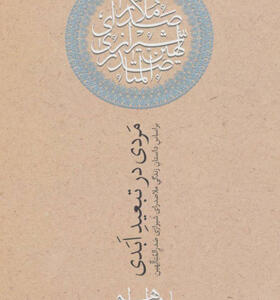 ملاصدرای شیرازی
صدرالمتألهین
مردی در تبعیدِ اَبَدی
براساس داستان زندگی ملاصدرای شیرازی صدرالمتألهین